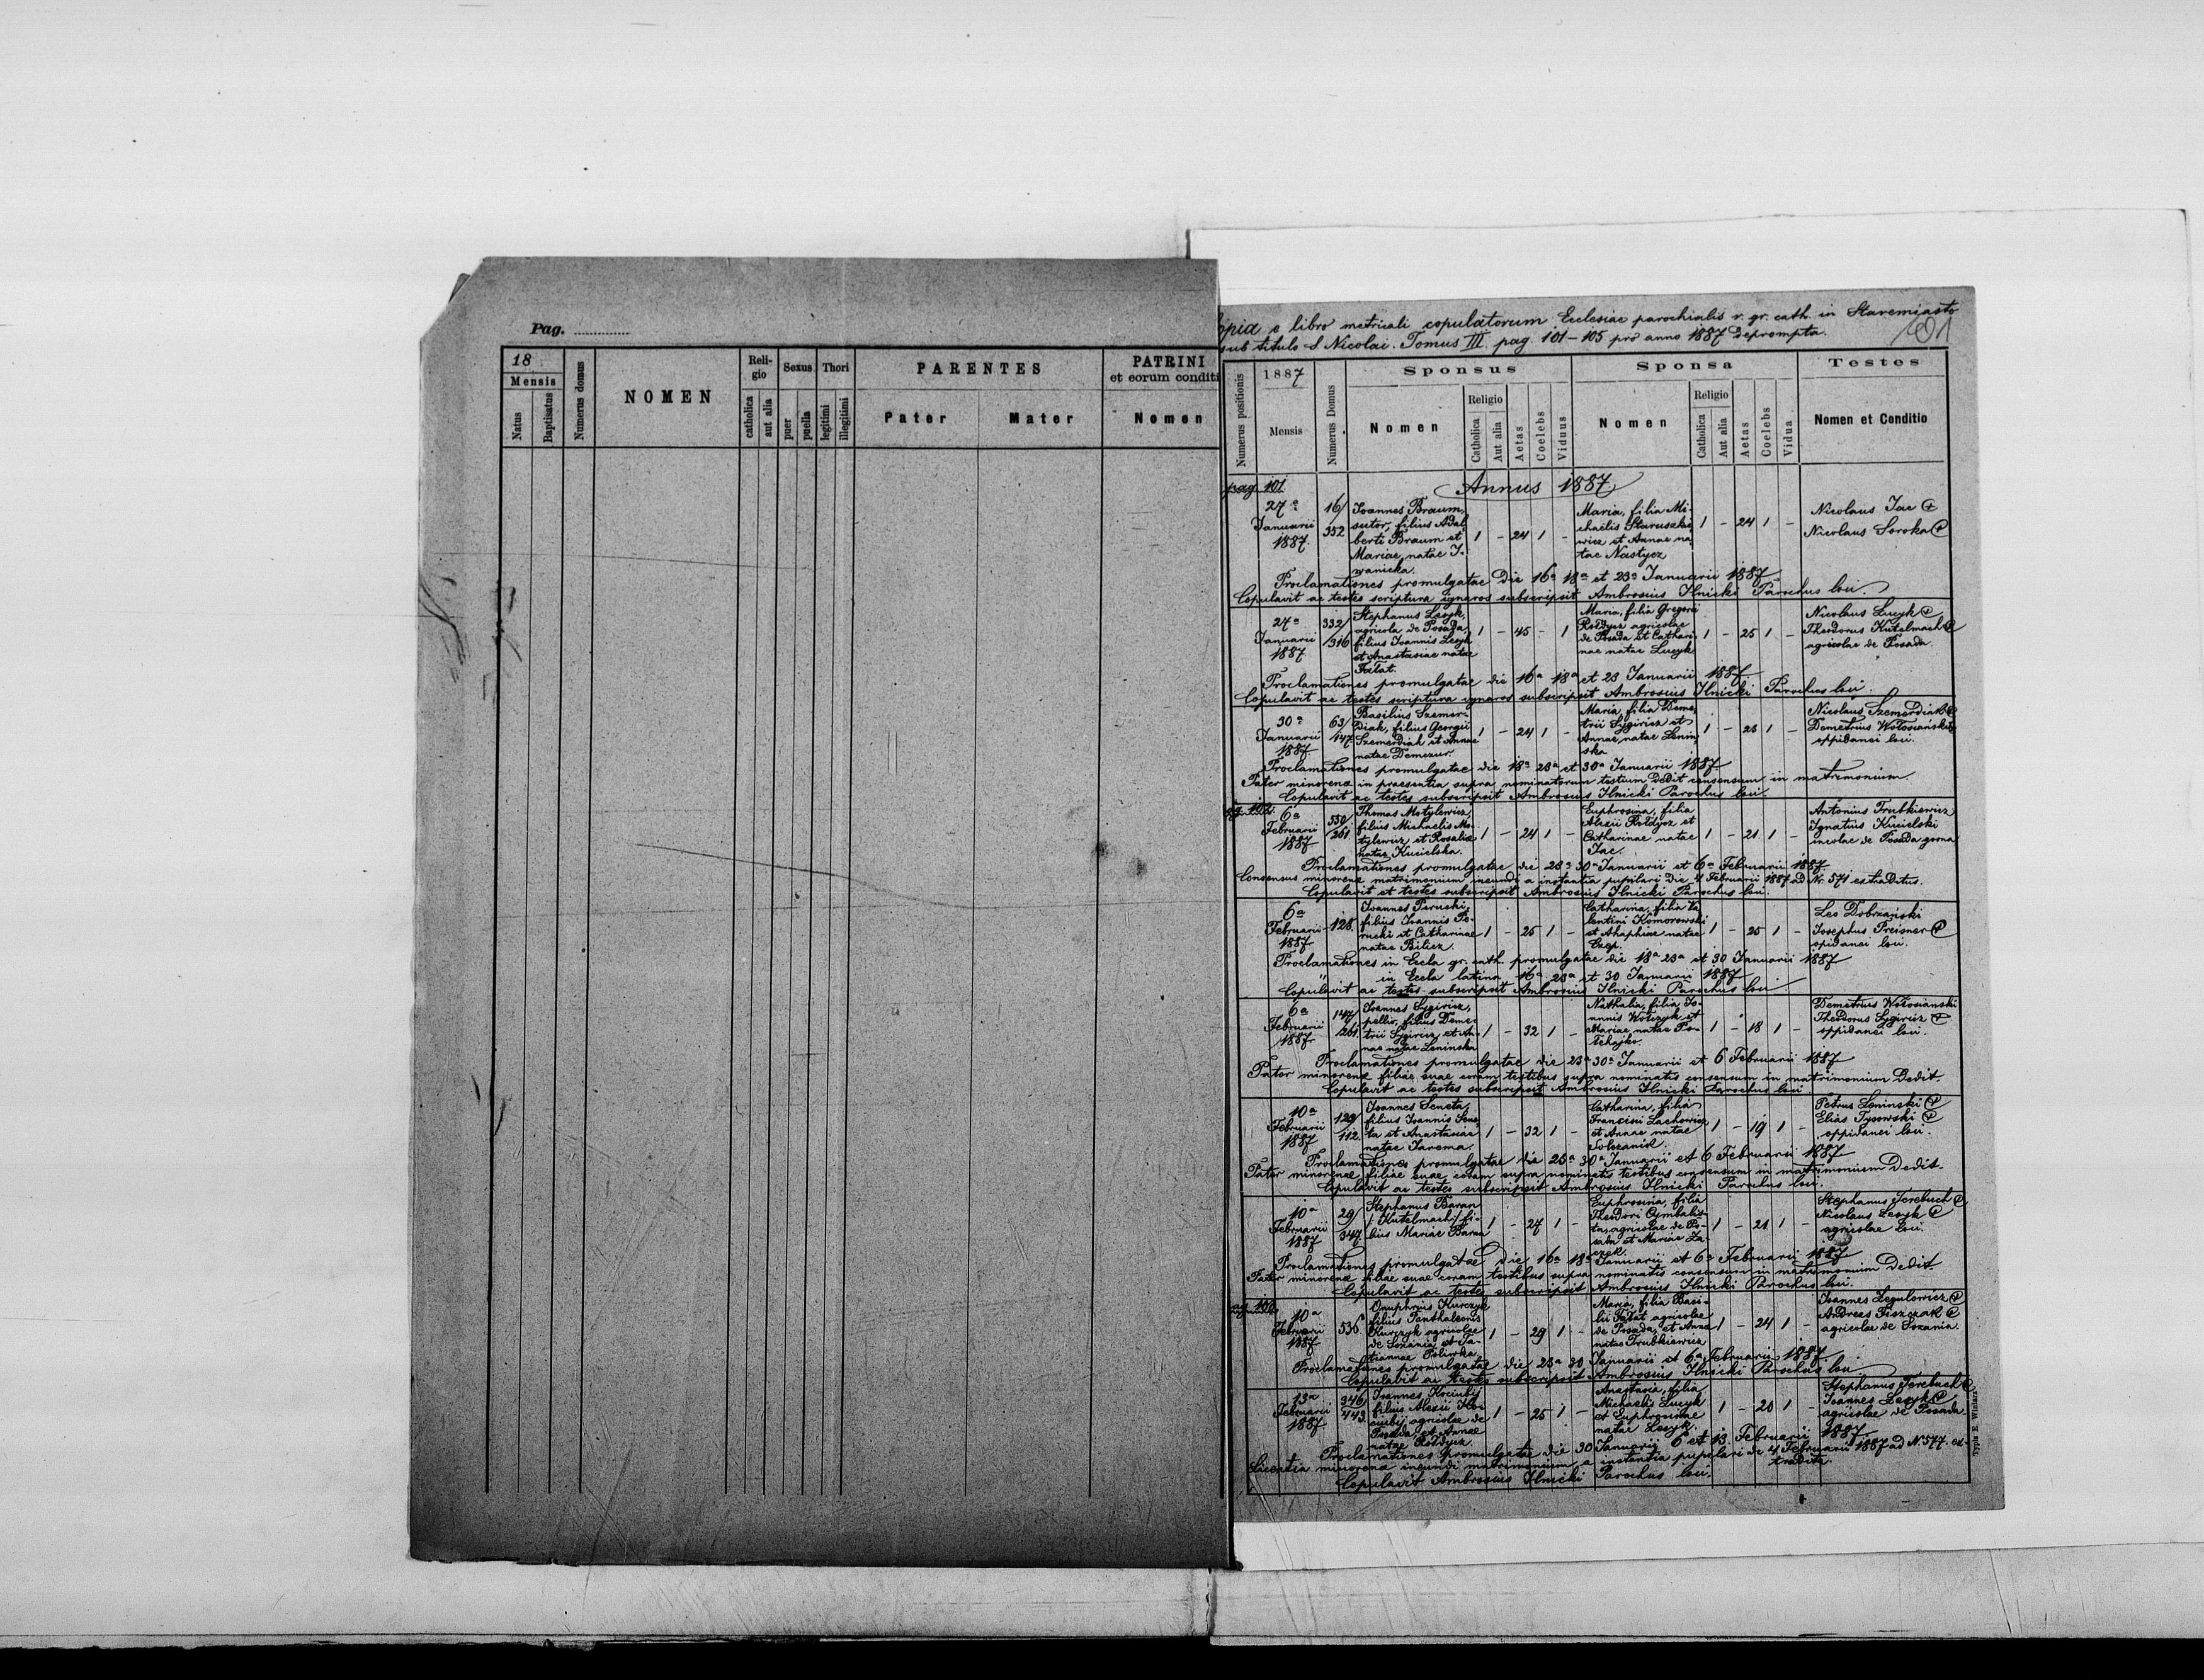 Pag. ............
18
Mensis
Natus
Baptisatus
Numerus domus
NOMEN
Reli-
gio
catholica
aut alia
Sexus
puer
puella
Thori
legitimi
illegitimi
PARENTES
Pater
Mater
PATRINI
et eorum conditi
Nomen
opia e libro metricali copulatorum Ecclesiae parochialis r. gr. cath. in Staremiasto
sub titulo S Nicolai. Tomus III. pag. 101-105 pro anno 1887 deprompta.
Numerus positionis
1887
Mensis
Numerus Domus
Sponsus
Nomen
Religio
Catholica
Aut alia
Aetas
Coelebs
Viduus
Sponsa
Nomen
Religio
Catholica
Aut alia
Aetas
Coelebs
Vidua
Testes
Nomen et Conditio
pag. 101
Annus 1887
27a
Januarii
1887
16/
352
Joannes Braum,
sutor, filius Adal
berti Braum et
Mariae, natae I-
wanicka.
1 - 24 1 -
Maria, filia Mi-
chaelis Staruszkie
wicz et Annae na
tae Nastycz
1 - 24 1 -
Nicolaus Jac
Nicolaus Soroka
Proclamationes promulgatae die 16a 18a et 23a Januarii 1887
Copulavit ac testes scriptura ignaros subscripsit Ambrosius Ilnicki Parochus loci.
27a
Januarii
1887
332/
/316
Stephanus Lesyk,
agricola de Posada,
filius Joannis Lesyk
et Anastasiae natae
1 - 45 - 1
Maria, filia Gregorii
Rozdycz agricolae
de Posada et Cathari
nae natae Lucyk
1 - 25 1 -
Nicolaus Lucyk
Theodorus Kutelmach
agricolae de Posada.
Proclamationes promulgatae die 16a 18a et 23 Januarii 1887
Copulavit ac testes scriptura ignaros subscripsit Ambrosius Ilnicki Parochus loci.
30a
Januarii
1887
63/
/147
Basilius Szemer-
diak, filius Georgii
Szemerdiak et Annae
natae Demczur
1 - 24 1 -
Maria, filia Deme
trii Sygiricz et
Annae natae Lenin
ska
1 - 23 1 -
Nicolaus Szemerdiak
Demetrius Wołosiański
oppidanei loci.
Proclamationes promulgatae die 18a 23a et 30a Januarii 1887
Pater minorenae in praesentia supra nominatorum testium dedit consensum in matrimonium.
Copulavit ac testes subscripsit Ambrosius Ilnicki Parochus loci.
pag. 102.
6a
Februarii
1887
550/
/261
Thomas Motylewicz,
filius Michaelis Mo
tylewicz et Rosaliae
natae Kucielska.
1 - 24 1 -
Euphrosina, filia
Alexii Rozdycz et
Catharinae natae
Jac.
1 - 21 1 -
Antonius Trubkiewicz
Ignatius Kucielski
incolae de Posada gorna
Proclamationes promulgatae die 23a 30a Januarii et 6a Februarii 1887
Consensus minorenae matrimonium ineundi a instantia pupilari die 4 Februarii 1887 ad N. 571 extraditus.
Copulavit et testes subscripsit Ambrosius Ilnicki Parochus loci.
6a
Februarii
1887
128.
Joannes Perucki,
filius Joannis Pe-
rucki et Catharinae
natae Bilicz.
1 - 25 1 -
Catharina, filia Va
lentini Komorowski
et Ahaphiae natae
1 - 25 1 -
Leo Dobrzański
Josephus Preisner
opidanei loci.
Proclamationes in Eccla gr. cath. promulgatae die 18a 23a et 30 Januarii 1887
" in Eccla latina 16a 23a et 30 Januarii 1887
Copulavit ac testes subscripsit Ambrosius Ilnicki Parochus loci
6a
Februarii
1887
147/
/261
Joannes Sygiricz,
pellio, filius Deme-
trii Sygiricz et An-
nae natae Leninska
1 - 32 1 -
Nathalia, filia Jo-
annis Wołczyk et
Mariae natae Po-
tchajko.
1 - 18 1 -
Demetrius Wołosianski
Theodorus Sygiricz
oppidanei loci.
Proclamationes promulgatae die 23a 30a Januarii et 6 Februarii 1887
Pater minorenae filiae suae coram testibus supra nominatis consensum in matrimonium dedit.
Copulavit ac testes subscripsit Ambrosius Ilnicki Parochus loci
10a
Februarii
1887
129/
112.
Joannes Seneta,
filius Joannis Sene
ta et Anastasiae
natae Jarema.
1 - 32 1 -
Catharina, filia
Francisci Lachowicz
et Annae natae
1 - 19 1 -
Petrus Leninski
Elias Tysowski
oppidanei loci.
Proclamationes promulgatae die 23a 30a Januarii et 6 Februarii 1887
Pater minorenae filiae suae coram supra nominatis testibus consensum in matrimonium dedit.
Copulavit ac testes subscripsit Ambrosius Ilnicki Parochus loci.
10a
Februarii
1887
29/
347.
Stephanus Baran
/Kutelmach/ fi-
lius Mariae Baran
1 - 27 1 -
Euphrosina, filia
Theodori Cymbalis-
ta, agricolae de Po-
sada et Mariae Za-
czek.
1 - 21 1 -
Stephanus Terebuch
Nicolaus Lesyk
agricolae loci.
Proclamationes promulgatae die 16a 18a Januarii et 6a Februarii 1887
Pater minorenae filiae suae coram testibus supra nominatis consensum in matrimonium dedit.
Copulavit ac testes subscripsit Ambrosius Ilnicki Parochus loci.
pag. 103.
10a
Februarii
1887
536
Onuphrius Kurczyk
filius Panthaleonis
Kurczyk agricolae
de Sozania et Ta-
tiannae Poliwka
1 - 29 1 -
Maria, filia Basi-
lii Fołat agricolae
de Posada et Annae
natae Trubkiewicz
1 - 24 1 -
Joannes Zegulowicz
Andreas Fiszczak
agricolae de Sozania.
Proclamationes promulgatae die 23a 30 Januarii et 6a Februarii 1887.
Copulavit ac testes subscripsit Ambrosius Ilnicki Parochus loci
13a
Februarii
1887
346/
443.
Joannes Kociubij
filius Alexii Ko-
ciubij agricolae de
Posada et Annae
natae Rozdycz
1 - 25 1 -
Anastasia, filia
Michaelis Lucyk
et Euphrosinae
natae Lesyk.
1 - 20 1 -
Stephanus Terebuch
Joannes Lesyk
agricolae de Posada.
Proclamationes promulgatae die 30 Januarii 6 et 13 Februarii 1887
Licentia minorenae ineundi matrimonium a instantia pupilari de 4 Februarii 1887 ad N. 577. ex-
tradita.
Copulavit Ambrosius Ilnicki Parochus loci.